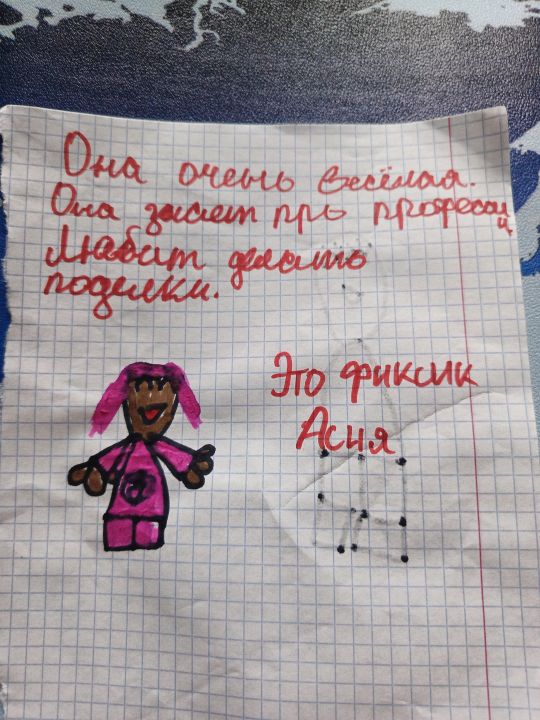 Она очень весёлая.
Она знает прь професси
Любит делать
поделки.
Это фиксик
Асия